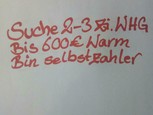 Suche 2-3 Zi. WHG
Bis 600€ Warm
Bin selbstzahler